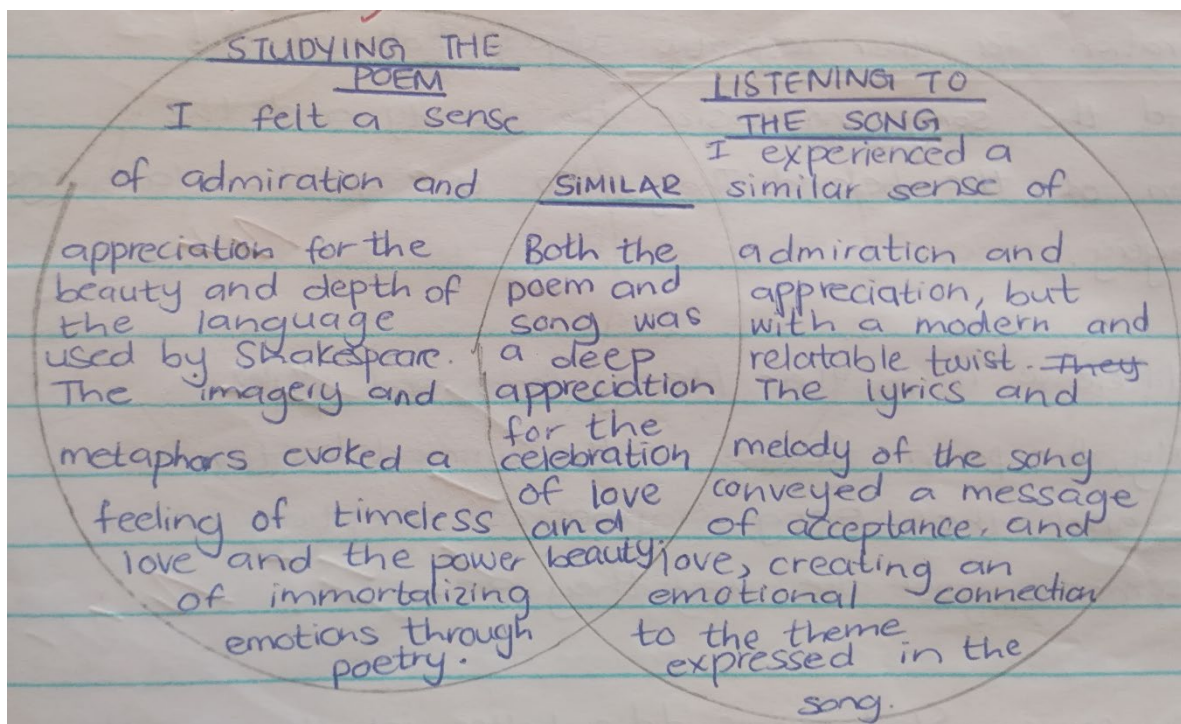 STUDYING THE
POEM
I felt a sense
of admiration and
appreciation for the
beauty and depth of
the language
used by Shakespeare.
The imagery and
metaphors evoked a
feeling of timeless
love and the power
of immortalizing
emotions through
poetry.
SIMILAR
Both the
poem and
song was
a deep
appreciation
for the
celebration
of love
and
beauty
LISTENING TO
THE SONG
I experienced a
similar sense of
admiration and
appreciation, but
with a modern and
relatable twist. They
The lyrics and
melody of the song
conveyed a message
of acceptance, and
love, creating an
emotional connection
to the theme
expressed in the
song.